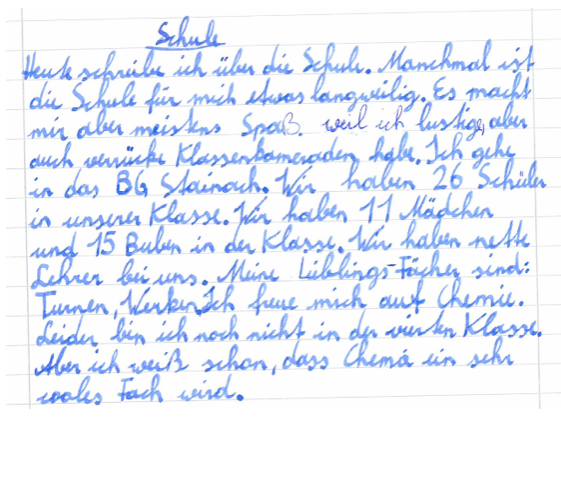 Schule
Heute schreibe ich über die Schule. Manchmal ist
die Schule für mich etwas langweilig. Es macht
mir aber meistens Spaß. weil ich lustige, aber
auch verrückte Klassenkameraden habe. Ich gehe
in das BG Stainach. Wir haben 26 Schüler
in unserer Klasse. Wir haben 11 Mädchen
und 15 Buben in der Klasse. Wir haben nette
Lehrer bei uns. Meine Lieblings-Fächer sind:
Turnen, Werken. Ich freue mich auf Chemie.
Leider bin ich noch nicht in der vierten Klasse.
Aber ich weiß schon, dass Chemie ein sehr
cooles Fach wird.